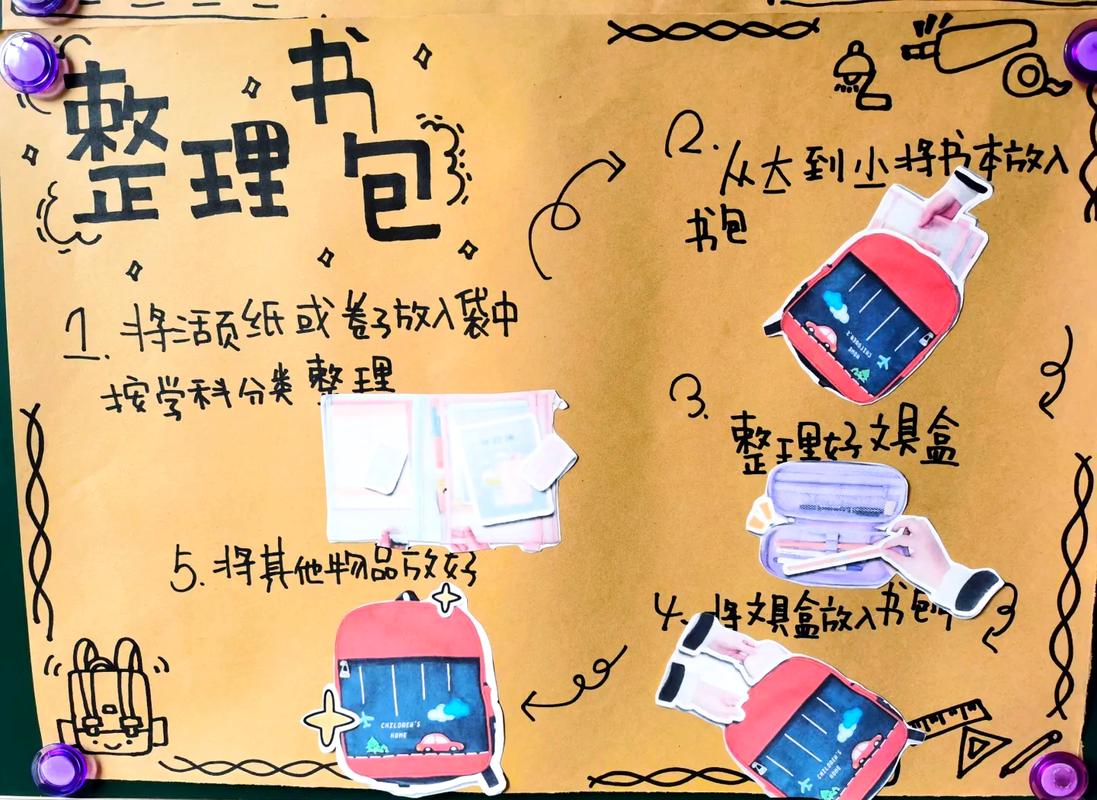 整理书包
1. 将活页纸或卷子放入袋中
按学科分类整理
2. 从大到小将书本放入
书包
CHILDREN'S
HOME
3. 整理好文具盒
4. 将文具盒放入书包中
CHILDREN'S
HOME
5. 将其他物品放好
CHILDREN'S
HOME